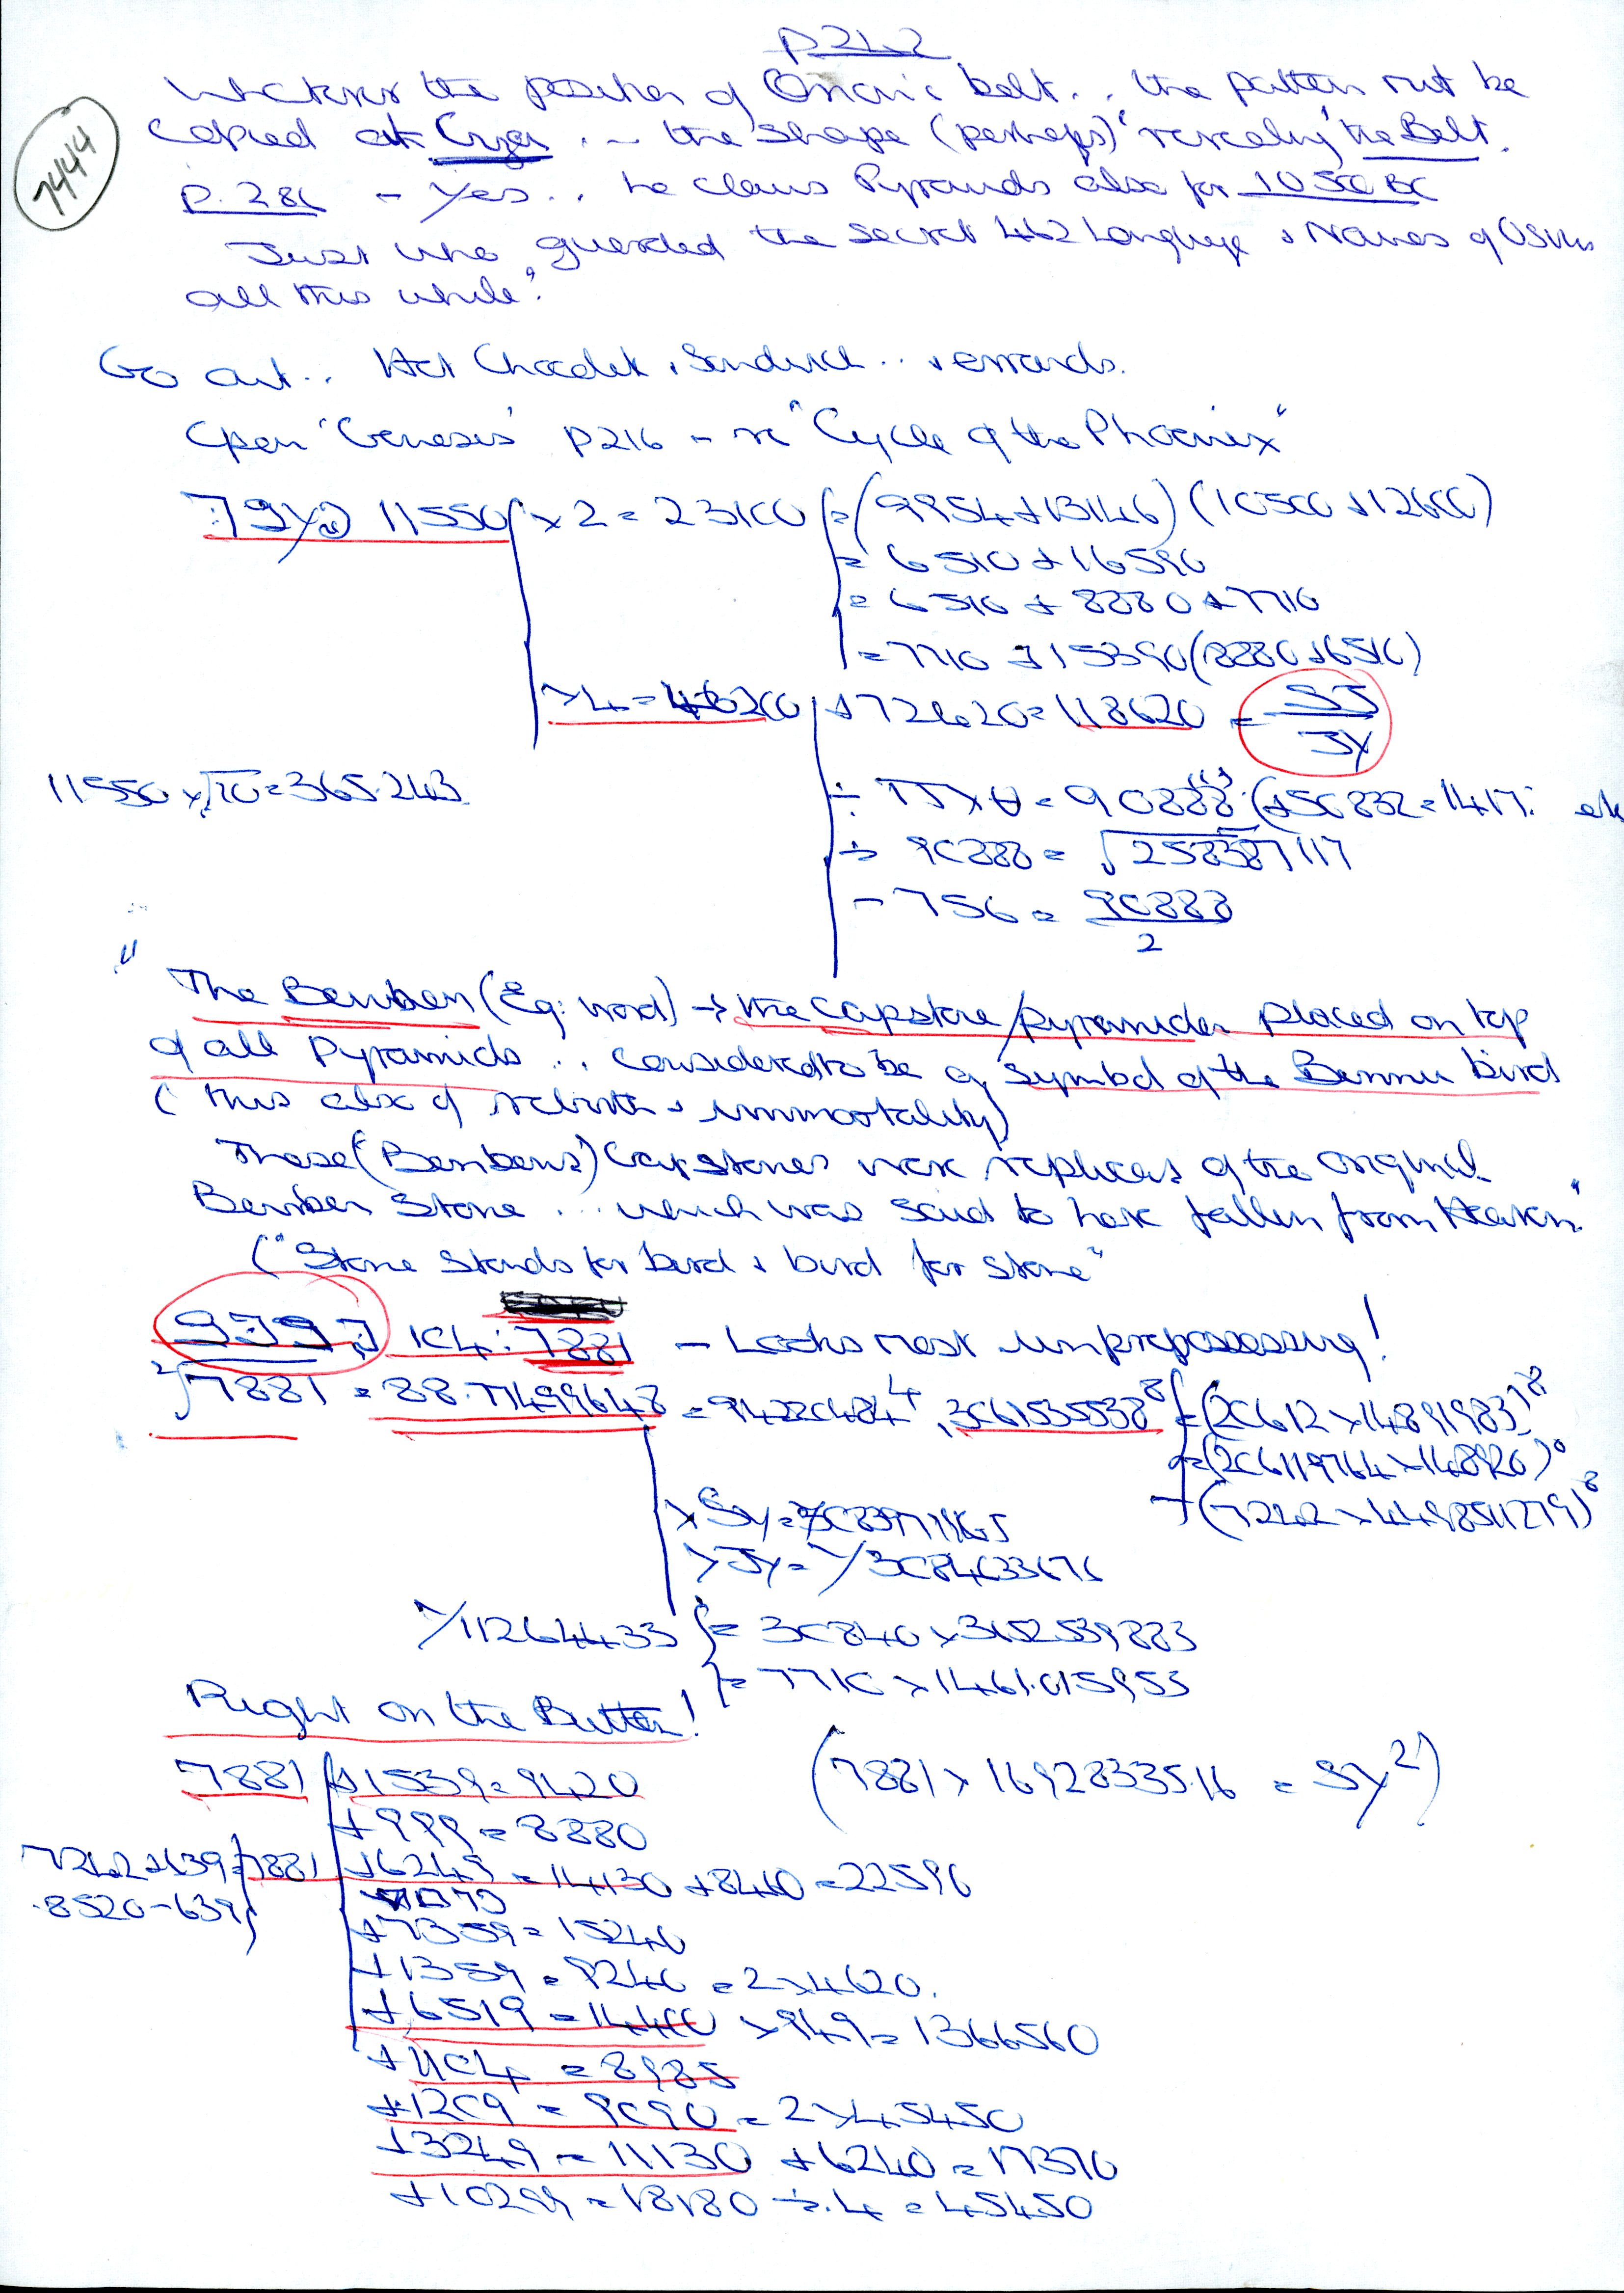 p212
Whatever the position of Orion's belt.. the pattern must be
copied at Gyza .. the shape (perhaps) 'revealing' the Belt.
7444
p. 286 - Yes... he claims Pyramids also for 10500 BC
Just who guarded the secret 462 Language & Names of Osiris
all this while?
Go out.. Hot Chocolate & Sandwich .. & errands.
Open 'Genesis' p216 - re "Cycle of the Phoenix"
11550 × 2 = 23100 = (9954 + 13146) (10500 + 12600)
= 6510 + 16590
= 6510 + 8880 + 7710
= 7710 + 15390 (8880 + 6510)
× 4 = 46200 + 72420 = 118620 = SJ/JY
11550 × √10 = 365.243
÷ 90888 = √258387117
- 756 = 90888/2
"The Benben (Eg: word) → the capstone/pyramiden placed on top
of all Pyramids .. considered to be a symbol of the Bennu bird
(this also of rebirth & immortality)
These (Benbens) Capstones were replicas of the original
Benben Stone ... which was said to have fallen from Heaven."
("Stone stands for bird & bird for stone"
104: 7881 - Looks most unprepossessing!
²√7881 = 88.77499648 = 94220484⁴, 3061535538⁸ = (20612 × 14891983)⁸
= (206119764 × 148920)⁸
= (7242 × 4498511279)⁸
× JY = 7/3084633676
7/11264433 = 30840 × 3652539883
= 7710 × 1461.015953
Right on the Button!
7881 + 1539 = 9420 (7881 × 1692833516 = SY²)
+ 999 = 8880
7242 + 639 = 7881 + 6249 = 14130 + 8460 = 22590
8520 - 639
+ 7359 = 15240
+ 1359 = 9240 = 2 × 4620.
+ 6519 = 14400 × 949 = 1366560
+ 1104 = 8985
+ 1209 = 9090 = 2 × 45450
+ 3249 = 11130 + 6240 = 17370
+ 10299 = 18180 ÷ 4 = 45450